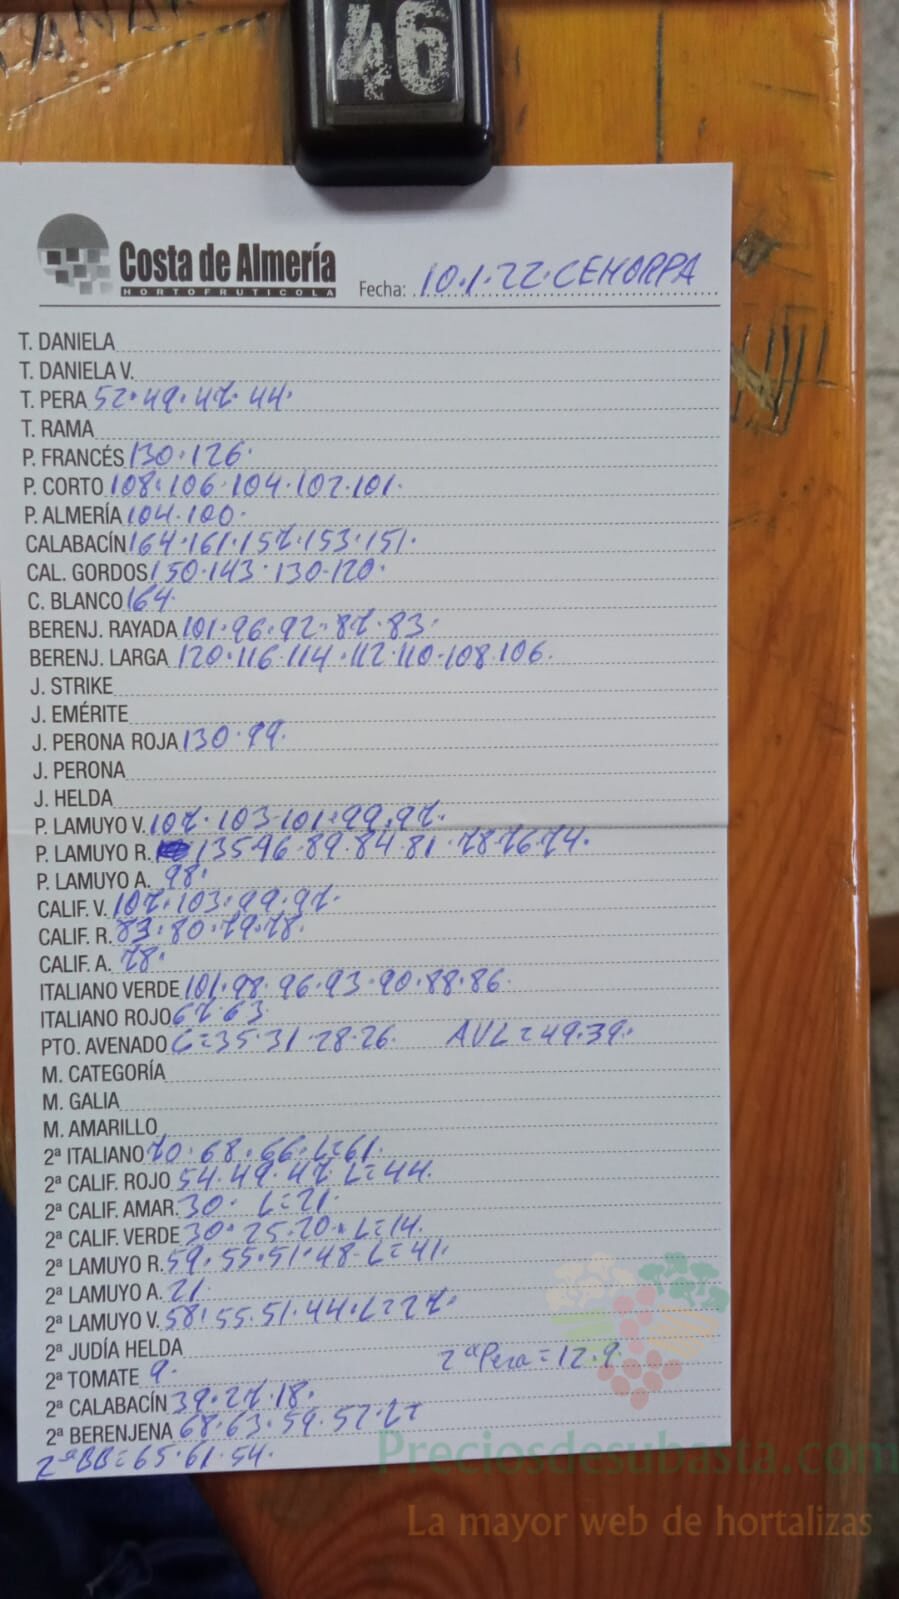 46
Costa de Almería
HORTOFRUTICOLA
Fecha: 10.1.22.CEHORPA
T. DANIELA
T. DANIELA V.
T. PERA 52.49.47.44.
T. RAMA
P. FRANCÉS 130.126.
P. CORTO 108.106.104.102.101.
P. ALMERÍA 104.100.
CALABACÍN 164.161.157.153.151.
CAL. GORDOS 150.143.130.120.
C. BLANCO 164.
BERENJ. RAYADA 101.96.92.87.83.
BERENJ. LARGA 120.116.114.112.110.108.106.
J. STRIKE
J. EMÉRITE
J. PERONA ROJA 130.99.
J. PERONA
J. HELDA
P. LAMUYO V. 107.103.101.99.97.
P. LAMUYO R. 135.96.89.84.81.78.76.74.
P. LAMUYO A. 98.
CALIF. V. 107.103.99.97.
CALIF. R. 83.80.79.78.
CALIF. A. 78.
ITALIANO VERDE 101.98.96.93.90.88.86.
ITALIANO ROJO 67.63.
PTO. AVENADO C=35.31.28.26. AVL=49.39.
M. CATEGORÍA
M. GALIA
M. AMARILLO
2ª ITALIANO 70.68.66.L=61.
2ª CALIF. ROJO 54.49.47.L=44.
2ª CALIF. AMAR. 30. L=21.
2ª CALIF. VERDE 30.25.20.L=14.
2ª LAMUYO R. 59.55.51.48.L=41.
2ª LAMUYO A. 21.
2ª LAMUYO V. 58.55.51.44.L=27.
2ª JUDÍA HELDA
2ª TOMATE 9. 2ªPera=12.9
2ª CALABACÍN 39.27.18.
2ª BERENJENA 68.63.59.57.L=
2ªBB=65.61.54.
Preciosdesubasta.com
La mayor web de hortalizas